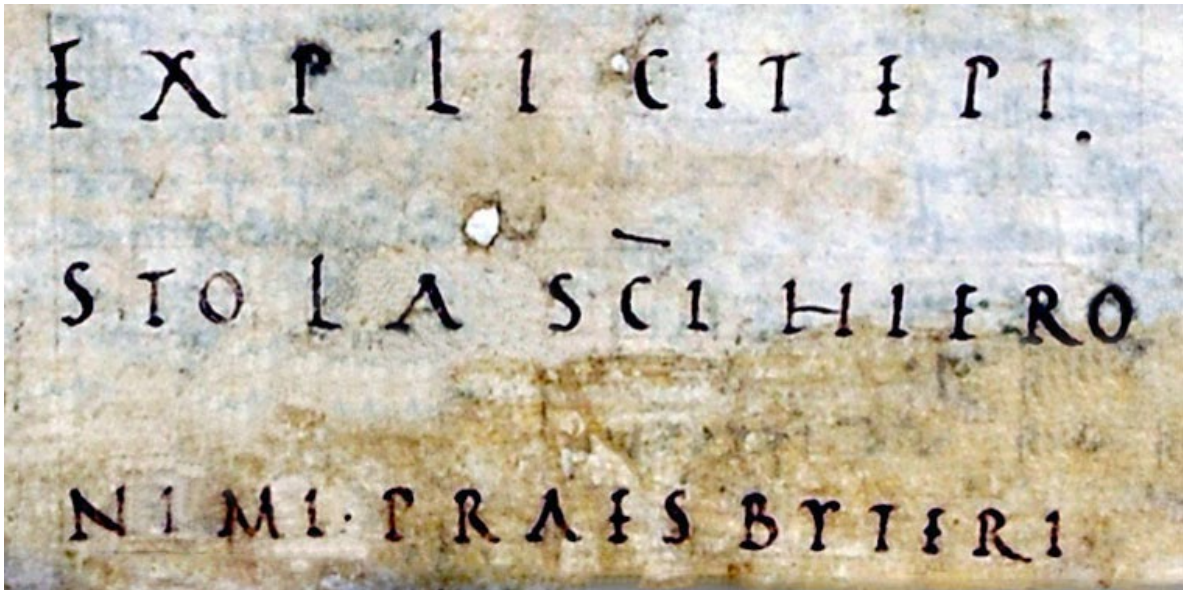 EXPLICIT EPI.
STOLA SC̅I HIERO
NIMI·PRAESBYTERI